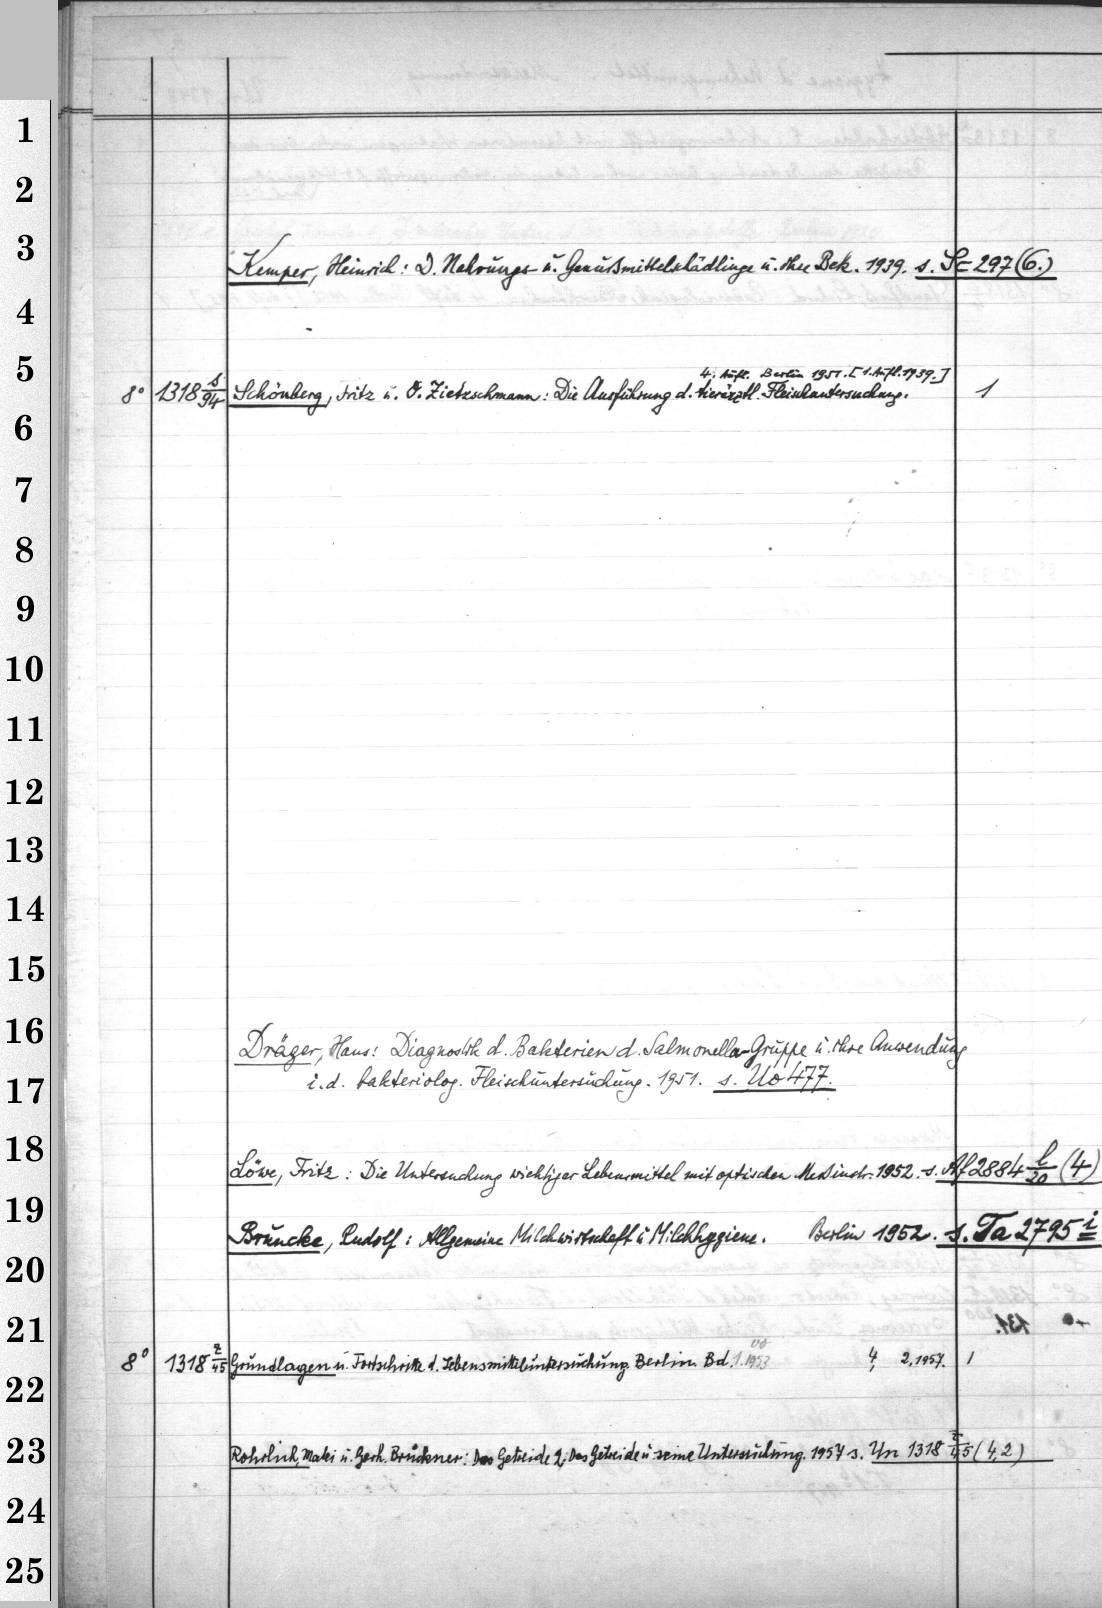 1
2
3
Kemper, Heinrich: D. Nahrungs- u. Genußmittelschädlinge u. ihre Bek. 1939. s. Sc 297 (6.)
4
5
4. Aufl. Berlin 1951. [1. Aufl. 1939.]
8° 1318 s/94 Schönberg, Fritz u. O. Zietzschmann: Die Ausführung d. tierärztl. Fleischuntersuchung. 1
6
7
8
9
10
11
12
13
14
15
16
Dräger, Hans: Diagnostik d. Bakterien d. Salmonella-Gruppe u. ihre Anwendung
17
i. d. bakteriolog. Fleischuntersuchung. 1951. s. Uo 477.
18
Löwe, Fritz: Die Untersuchung wichtiger Lebensmittel mit optischen Meßinstr. 1952. s. Af 2884 l/20 (4)
19
Bruncke, Rudolf: Allgemeine Milchwirtschaft u. Milchhygiene. Berlin 1952. s. Ta 2795 i
20
21
8° 1318 z/45 Grundlagen u. Fortschritte d. Lebensmitteluntersuchung. Berlin. Bd. 1. 1953 4, 2. 1957. 1
22
23
Rohrlich, u. Gerh. Brückner: Das Getreide 2. Das Getreide u. seine Untersuchung. 1957 s. Un 1318 z/45 (4,2)
24
25